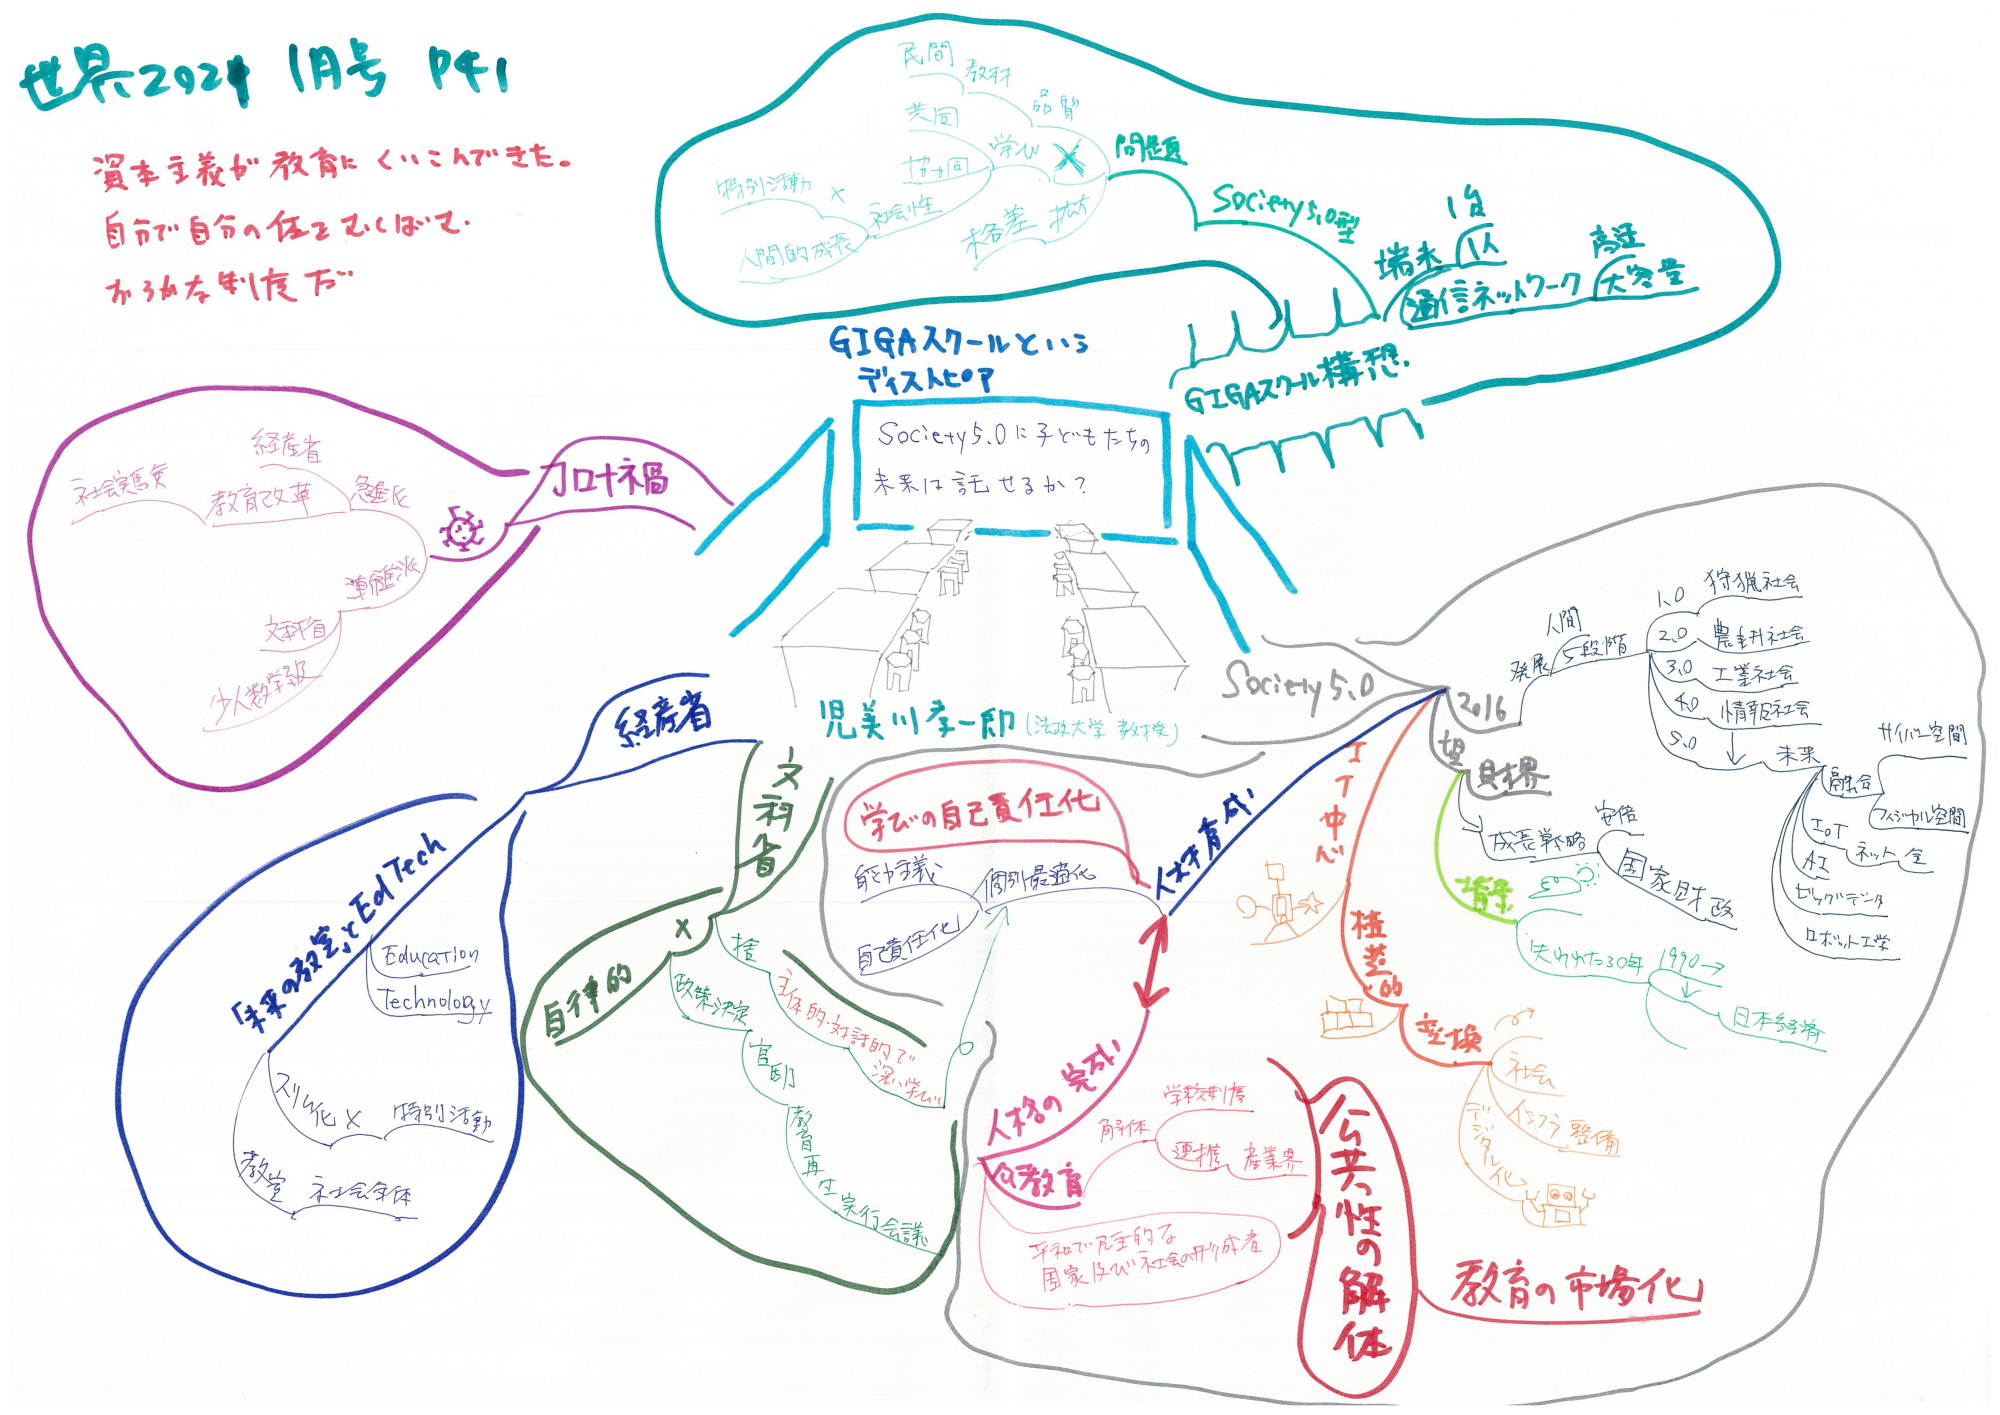 世界2021 1月号 P41
資本主義が教育にくいこんできた。
自分で自分の
おろかな制度だ
GIGAスクールという
ディストピア
Society5.0に子どもたちの
未来は託せるか?
児美川孝一郎(法政大学 教授)
GIGAスクール構想
端末
1台
1人
通信ネットワーク
高速
大容量
Society5.0型
問題
品質
教材
民間
学び
共同
協同
社会性
特別活動 ×
人間的成長
格差 拡大
Society5.0
2016
発展
人間
5段階
1.0 狩猟社会
2.0 農耕社会
3.0 工業社会
4.0 情報社会
5.0
未来
融合
サイバー空間
フィジカル空間
IoT ネット 全
AI
ビッグデータ
ロボット工学
財界
成長戦略
安倍
国家財政
背景
失われた30年
1990→
日本経済
IT中心
変換
社会
インフラ整備
デジタル化
人材育成
学びの自己責任化
個別最適化
能力主義
自己責任化
人格の完成
公教育
解体
学校制度
連携 産業界
平和で民主的な
国家及び社会の形成者
公共性の解体
教育の市場化
文科省
自律的
×
政策決定
官邸
教育再生実行会議
主体的・対話的で
深い学び
経産省
「未来の教室」とEdTech
Education
Technology
スリム化 × 特別活動
教室 社会全体
コロナ禍
急進派
教育改革
経産省
社会実験
準備派
文科省
少人数学級